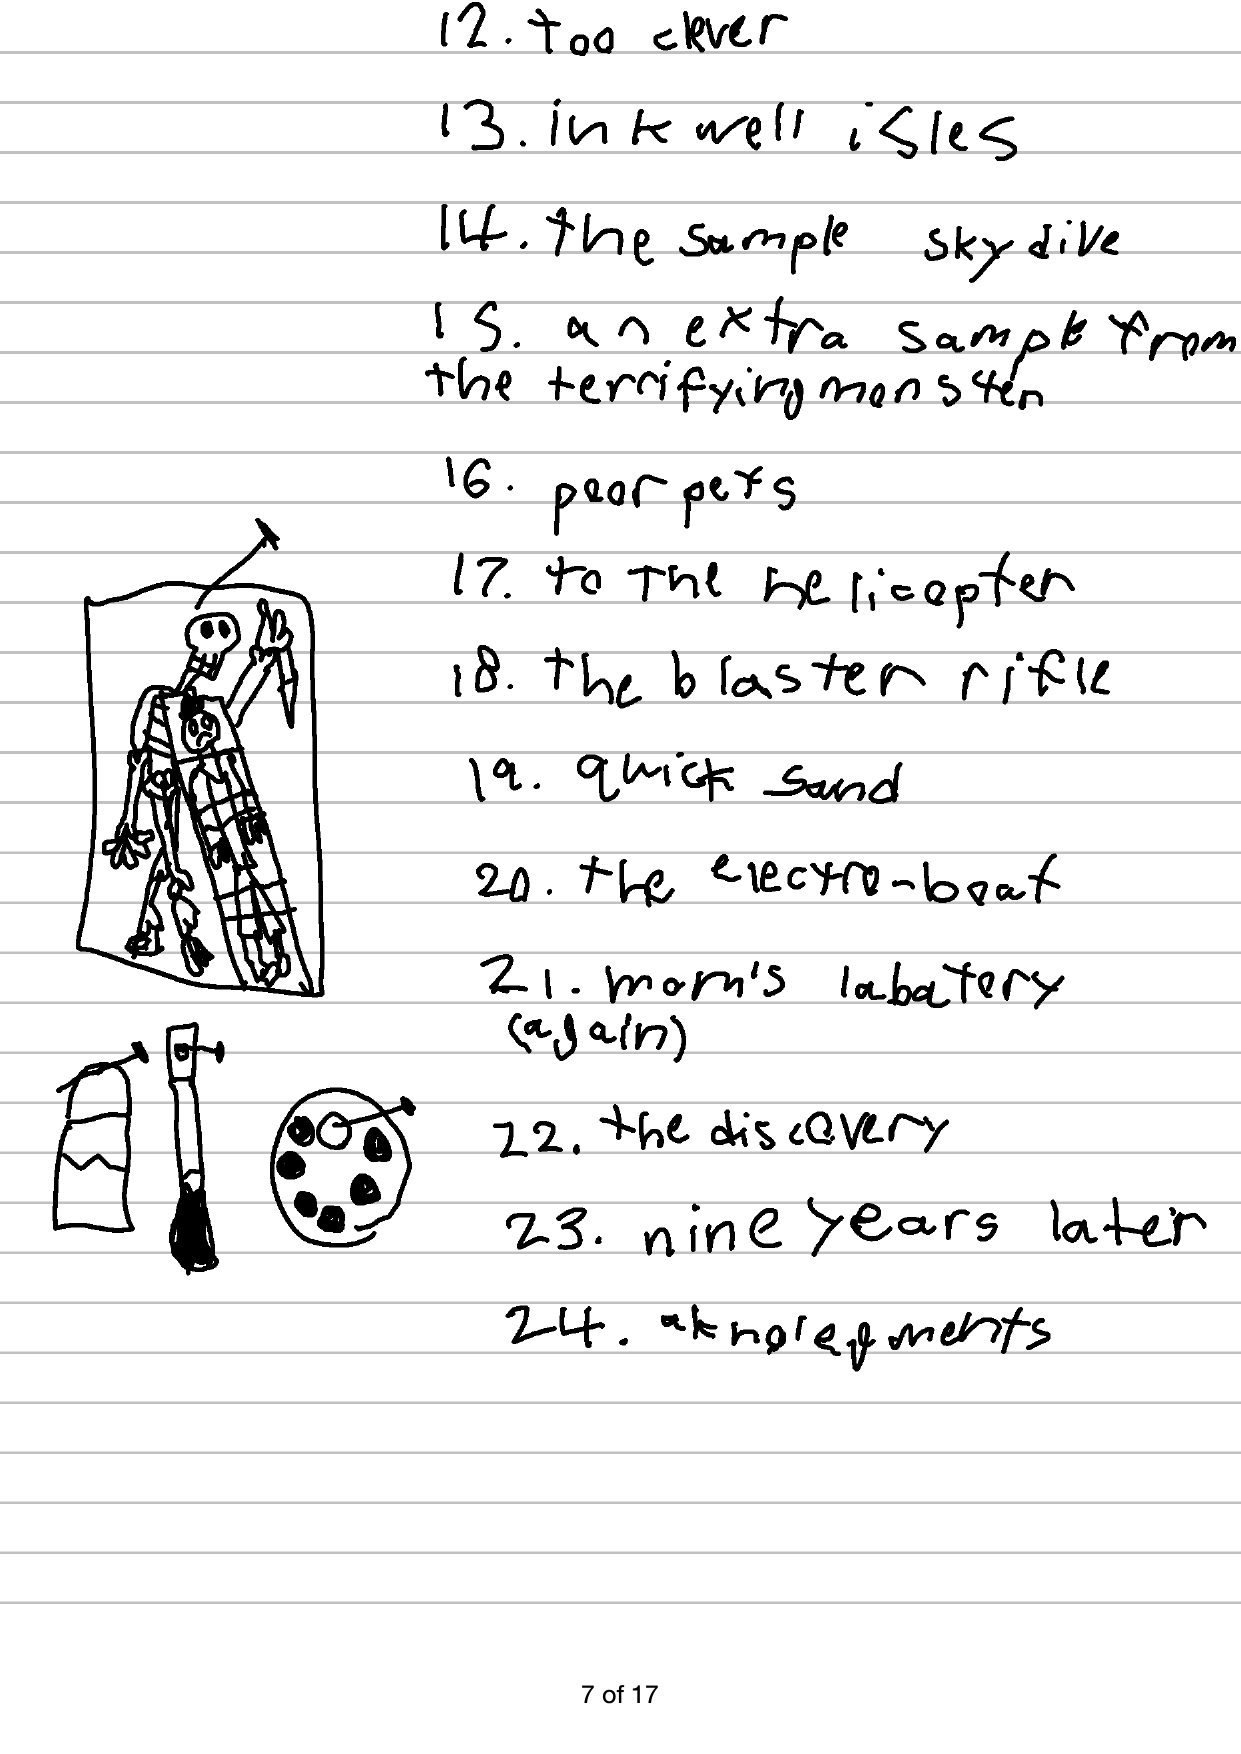 12. too clever
13. inkwell isles
14. the sample skydive
15. an extra sample from
the terrifying monster
16. poor pets
17. to the helicopter
18. the blaster rifle
19. quick sand
20. the electro-boat
21. mom's labatory
(again)
22. the discovery
23. nine years later
24. aknolegments
7 of 17